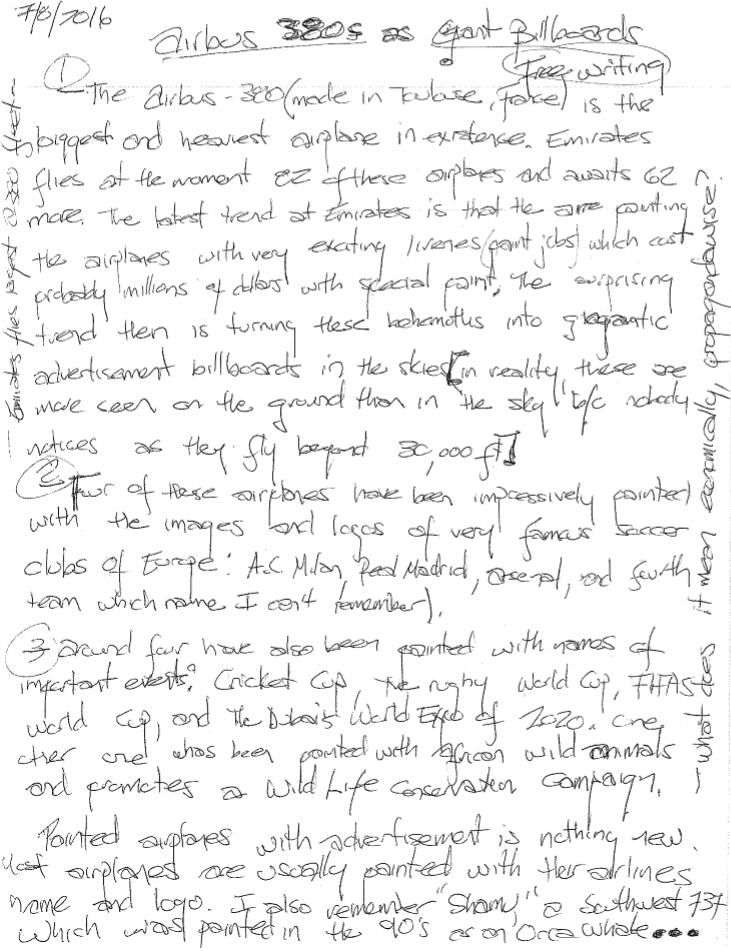 7/8/2016
Airbus 380s as Giant Billboards
Free writing
① The Airbus-380 (made in Toulouse, France) is the
biggest and heaviest airplane in existence. Emirates
flies at the moment 82 of these airplanes and awaits 62
more. The latest trend at Emirates is that the are painting
the airplanes with very exciting liveries (paint jobs) which cost
probably millions of dollars with special paint. The surprising
trend then is turning these behemoths into gigantic
advertisement billboards in the skies [in reality these are
more seen on the ground than in the sky b/c nobody
notices as they fly beyond 30,000 ft]
② Four of these airplanes have been impressively painted
with the images and logos of very famous soccer
clubs of Europe: A.C. Milan, Real Madrid, Arsenal, and fourth
team which name I can't remember).
③ Around four have also been painted with names of
important events: Cricket Cup, the rugby World Cup, FIFA's
World Cup, and the Dubai's World Expo of 2020. One
other one has been painted with African wild animals
and promotes a Wild Life Conservation Campaign.
Painted airplanes with advertisement is nothing new.
Most airplanes are usually painted with their airlines
name and logo. I also remember "Shamu," a Southwest 737
which was painted in the 90's as an Orca whale...
- Emirates flies largest A380 fleet -
- What does it mean economically, propagandawise?